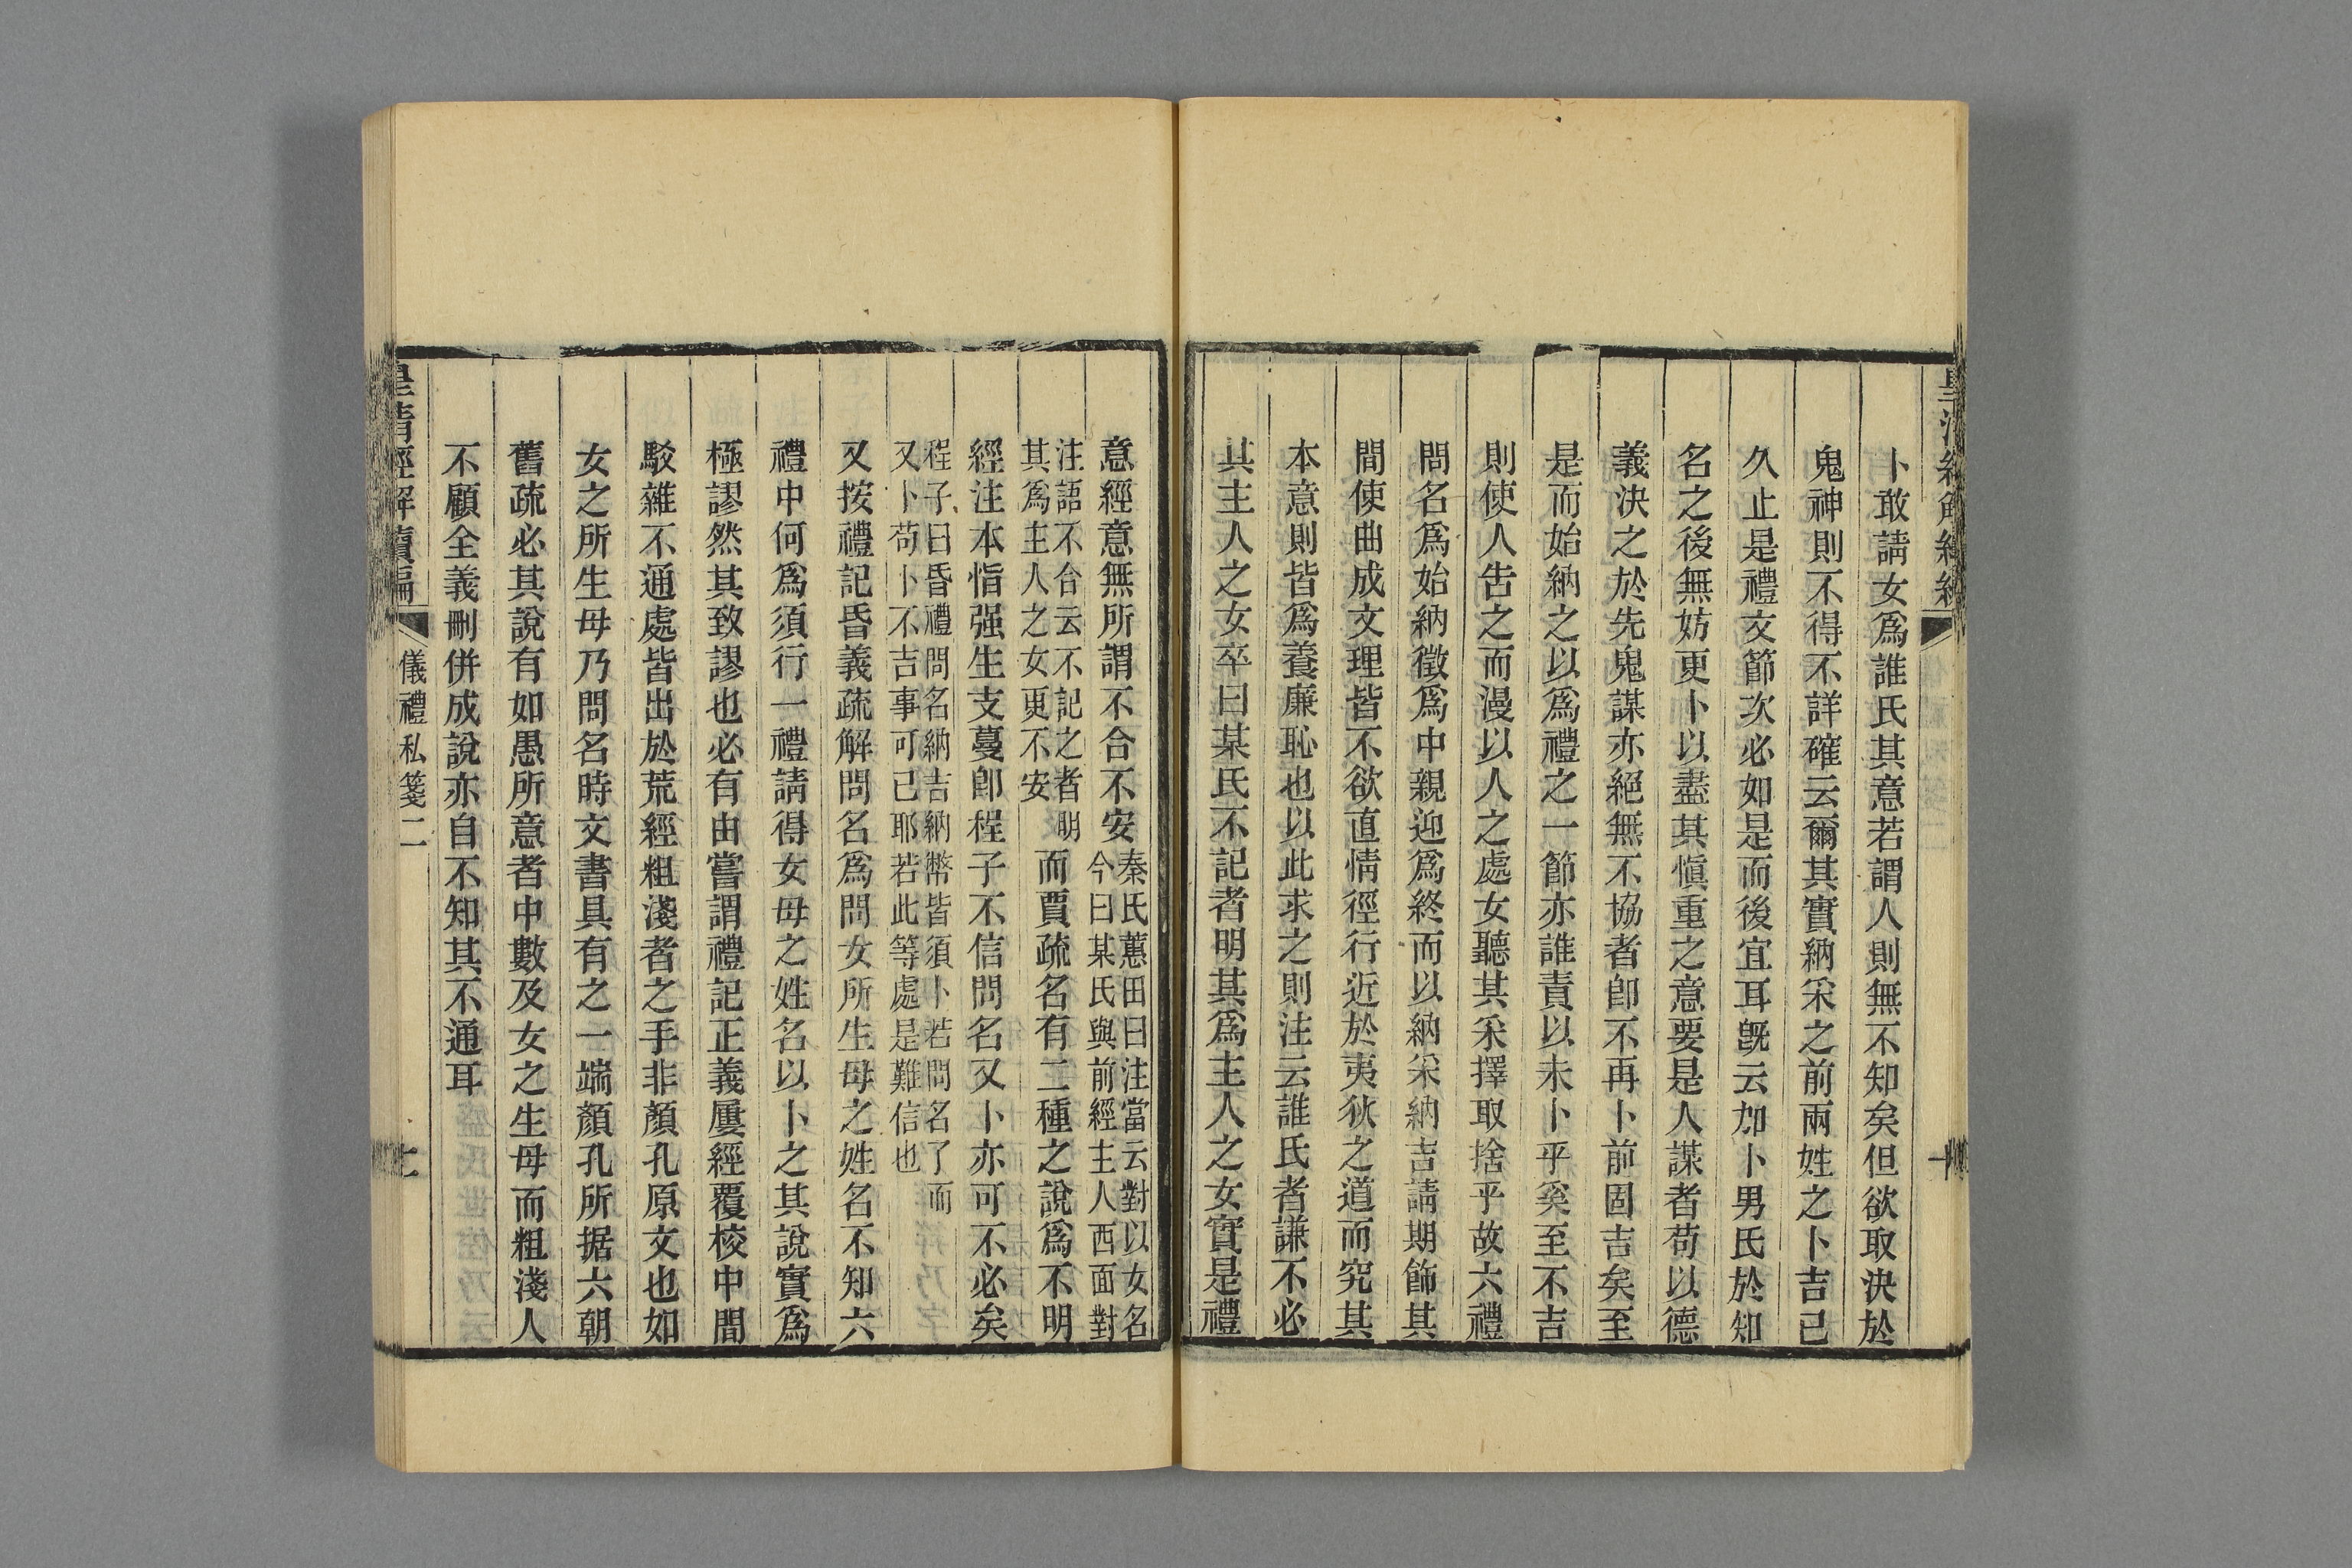 卜敢請女爲誰氏其意若謂人則無不知矣但欲取決於
鬼神則不得不詳確云爾其實納采之前兩姓之卜吉已
久止是禮文節次必如是而後宜耳旣云加卜男氏於知
名之後無妨更卜以盡其愼重之意要是人謀者苟以德
義決之於先鬼謀亦絕無不協者卽不再卜前固吉矣至
是而始納之以爲禮之一節亦誰責以未卜乎奚至不吉
則使人告之而漫以人之處女聽其采擇取捨乎故六禮
問名爲始納徵爲中親迎爲終而以納采納吉請期飾其
間使曲成文理皆不欲直情徑行近於夷狄之道而究其
本意則皆爲養廉恥也以此求之則注云誰氏者謙不必
其主人之女卒曰某氏不記者明其爲主人之女實是禮
意經意無所謂不合不安秦氏蕙田曰注當云對以女名
今曰某氏與前經主人西面對
注語不合云不記之者明
其爲主人之女更不安而賈疏名有二種之說爲不明
經注本恉强生支蔓卽程子不信問名又卜亦可不必矣
程子曰昏禮問名納吉納幣皆須卜若問名了而
又卜苟卜不吉事可已耶若此等處是難信也
又按禮記昏義疏解問名爲問女所生母之姓名不知六
禮中何爲須行一禮請得女母之姓名以卜之其說實爲
極謬然其致謬也必有由嘗謂禮記正義屢經覆校中間
駁雜不通處皆出於荒經粗淺者之手非顏孔原文也如
女之所生母乃問名時文書具有之一端顏孔所据六朝
舊疏必其說有如愚所意者中數及女之生母而粗淺人
不顧全義刪併成說亦自不知其不通耳
皇清經解續編
儀禮私箋二